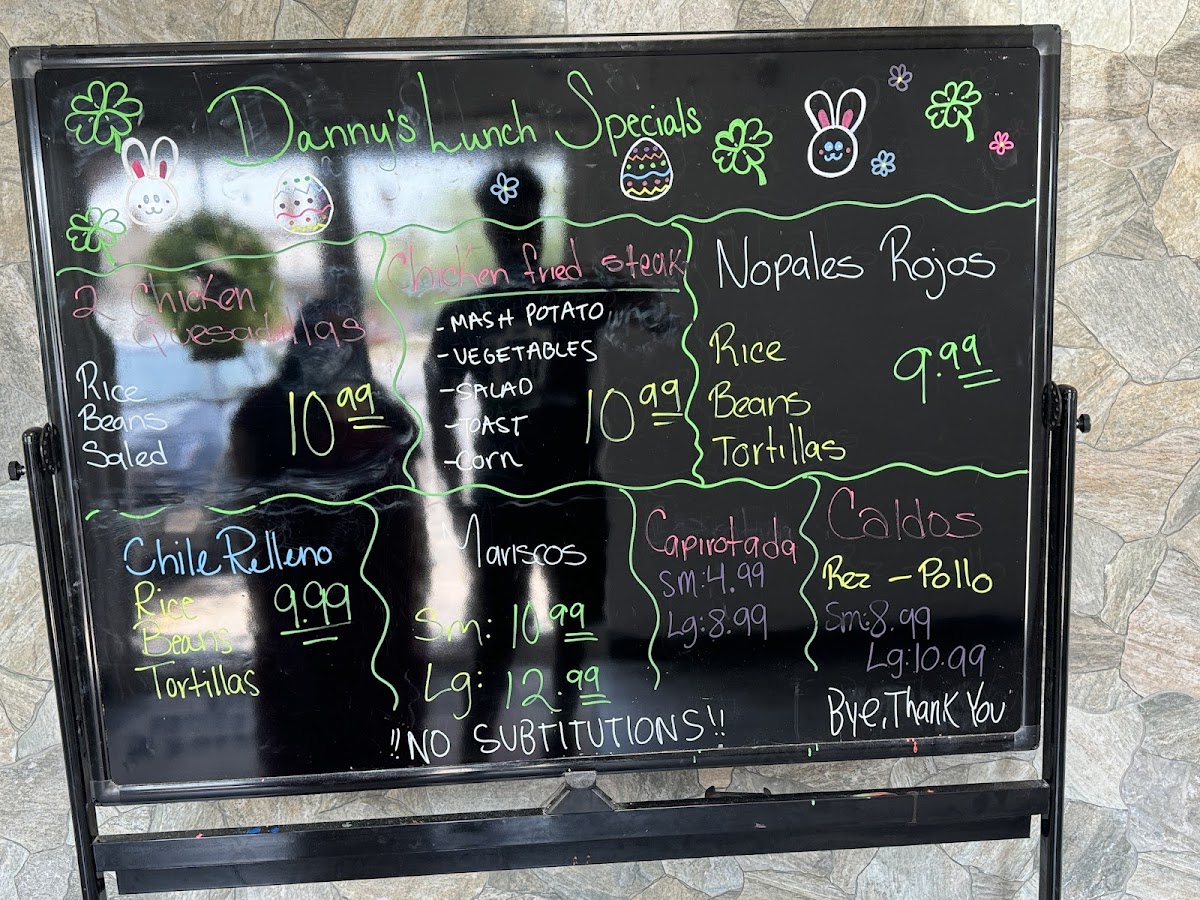 Danny's Lunch Specials
2 Chicken
Quesadillas
Rice
Beans
Saled
10.99
Chicken fried steak
- MASH POTATO
- VEGETABLES
- SALAD
- TOAST
- Corn
10.99
Nopales Rojos
Rice
Beans
Tortillas
9.99
Chile Relleno
Rice
Beans
Tortillas
9.99
Mariscos
Sm: 10.99
Lg: 12.99
Capirotada
Sm: 4.99
Lg: 8.99
Caldos
Rez - Pollo
Sm: 8.99
Lg: 10.99
!! NO SUBTITUTIONS !!
Bye, Thank You